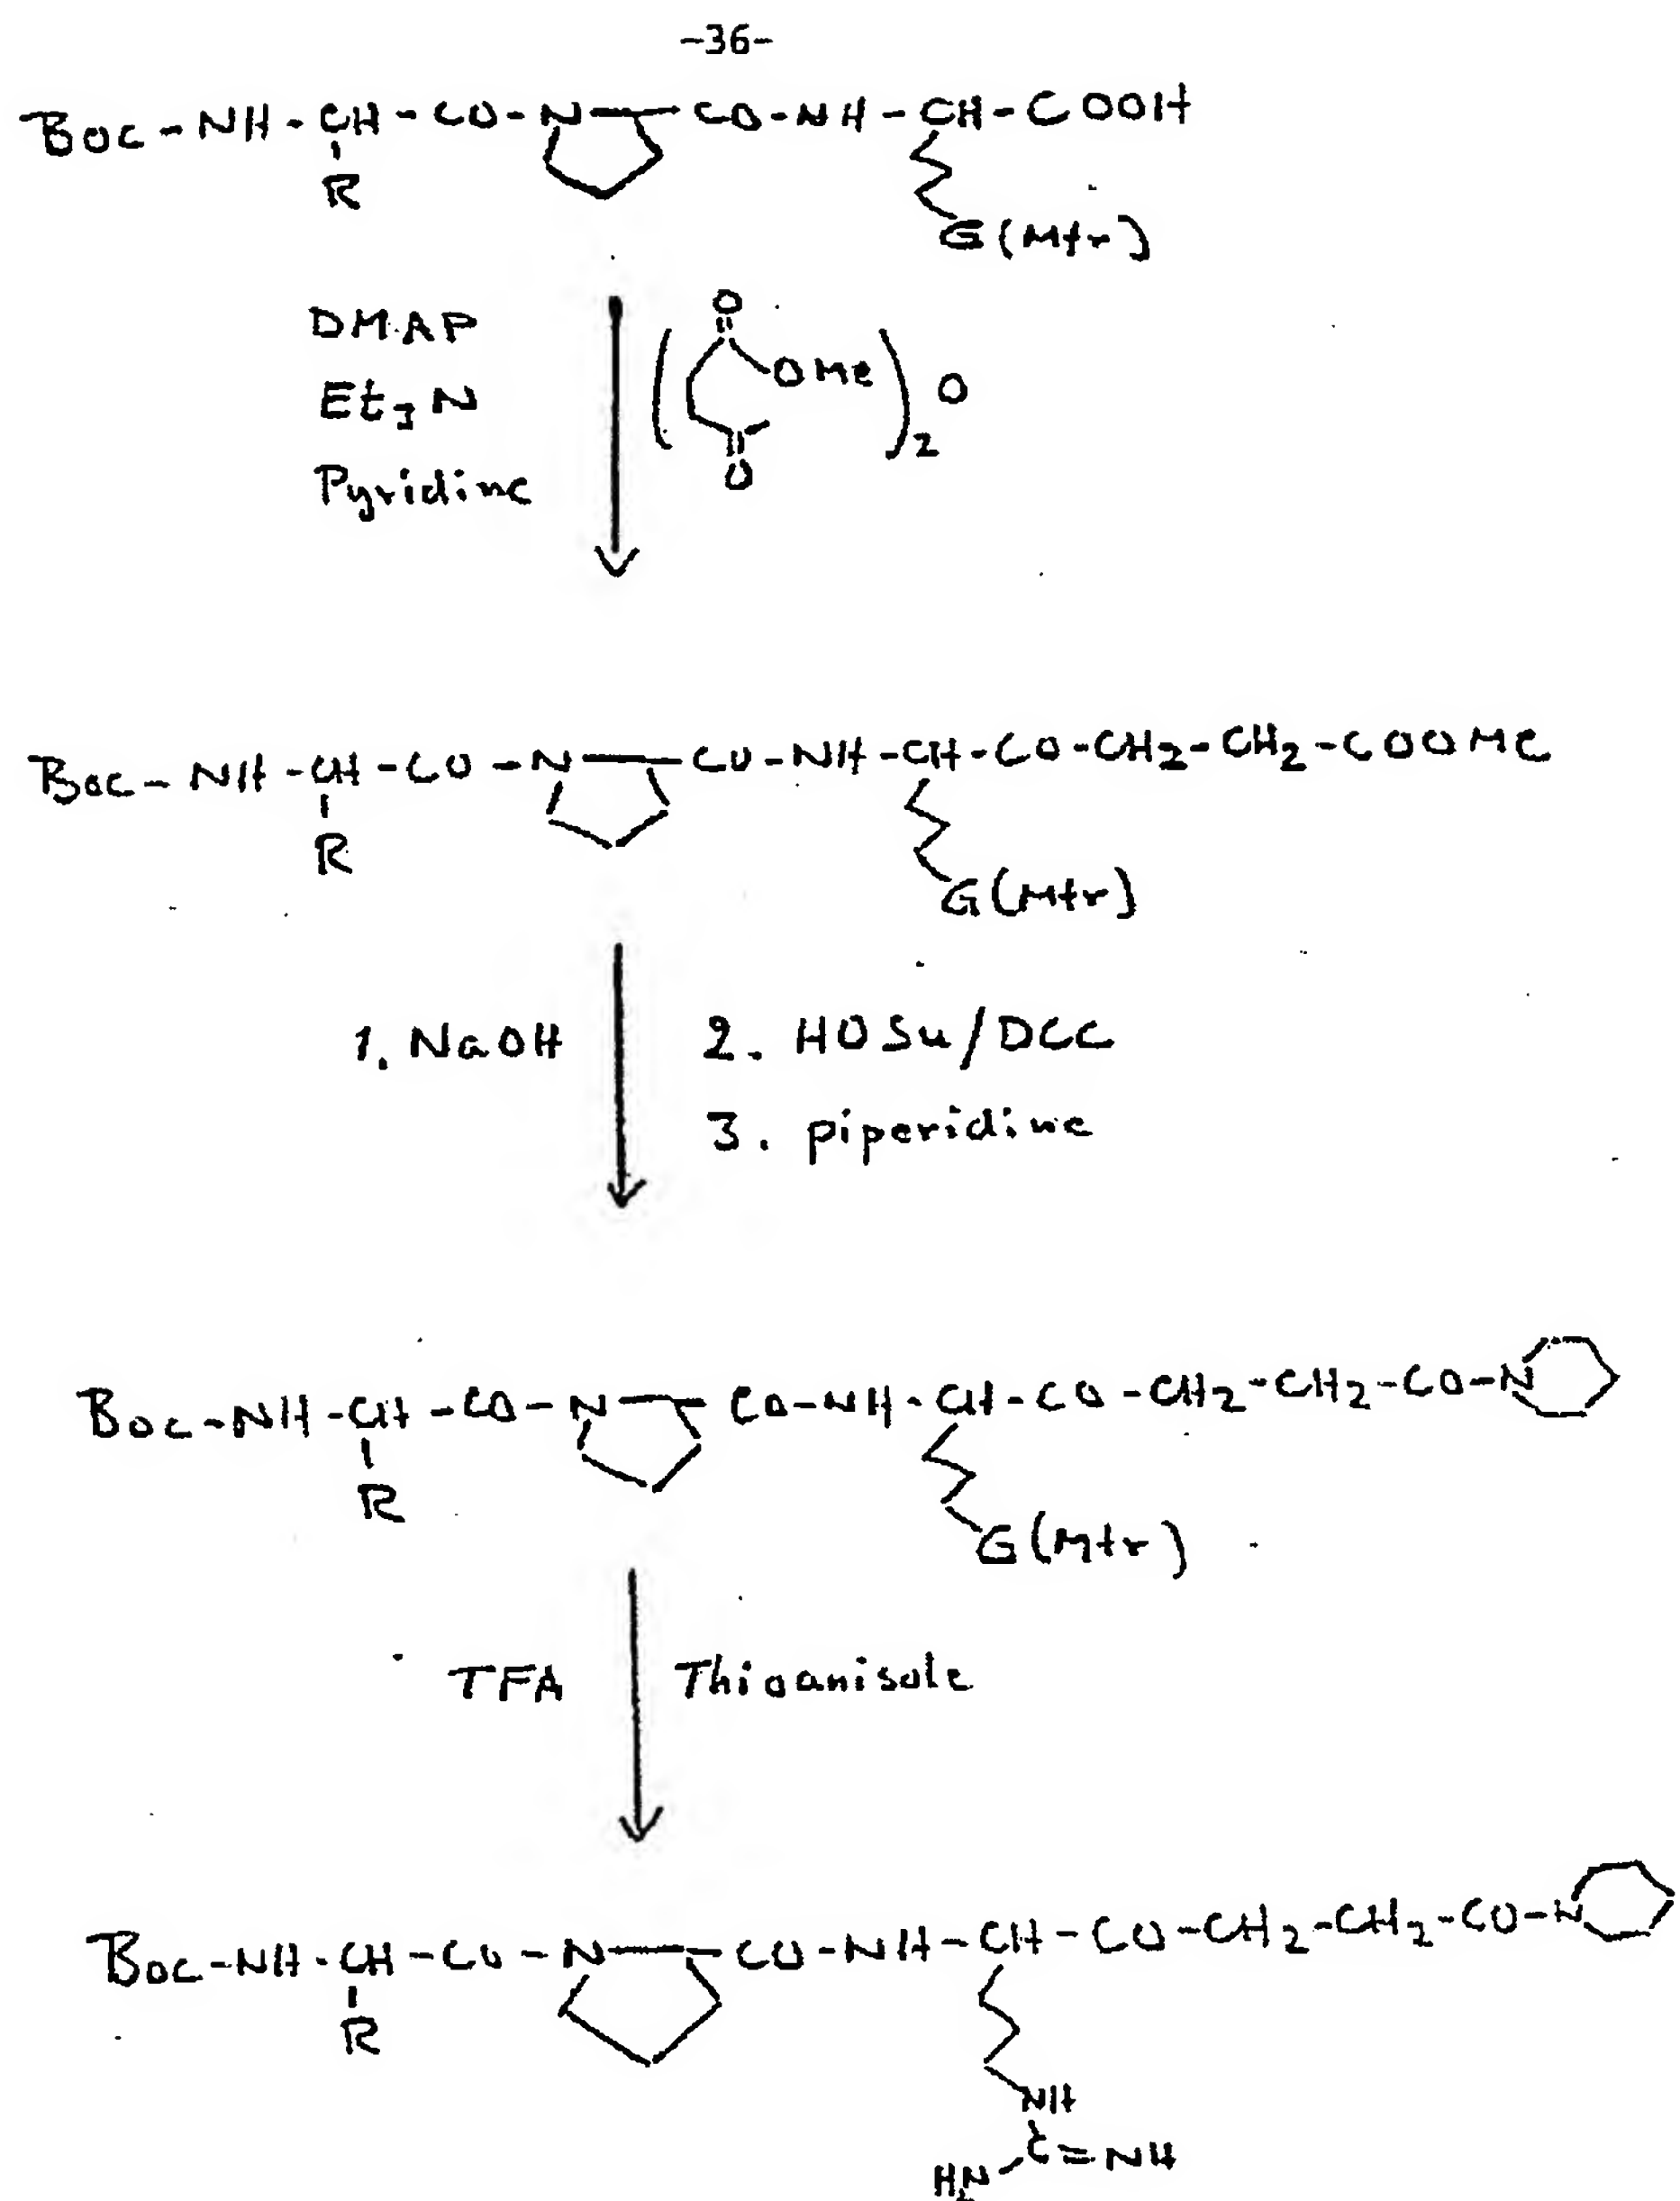 -36-
Boc-NH-CH-CO-N-CO-NH-CH-COOH
R
G(Mtr)
DMAP
Et3N
Pyridine
O
OMe
)2O
O
Boc-NH-CH-CO-N-CO-NH-CH-CO-CH2-CH2-COOMe
R
G(Mtr)
1. NaOH
2. HOSu/DCC
3. piperidine
Boc-NH-CH-CO-N-CO-NH-CH-CO-CH2-CH2-CO-N
R
G(Mtr)
TFA
Thioanisole
Boc-NH-CH-CO-N-CO-NH-CH-CO-CH2-CH2-CO-N
R
NH
H2N-C=NH